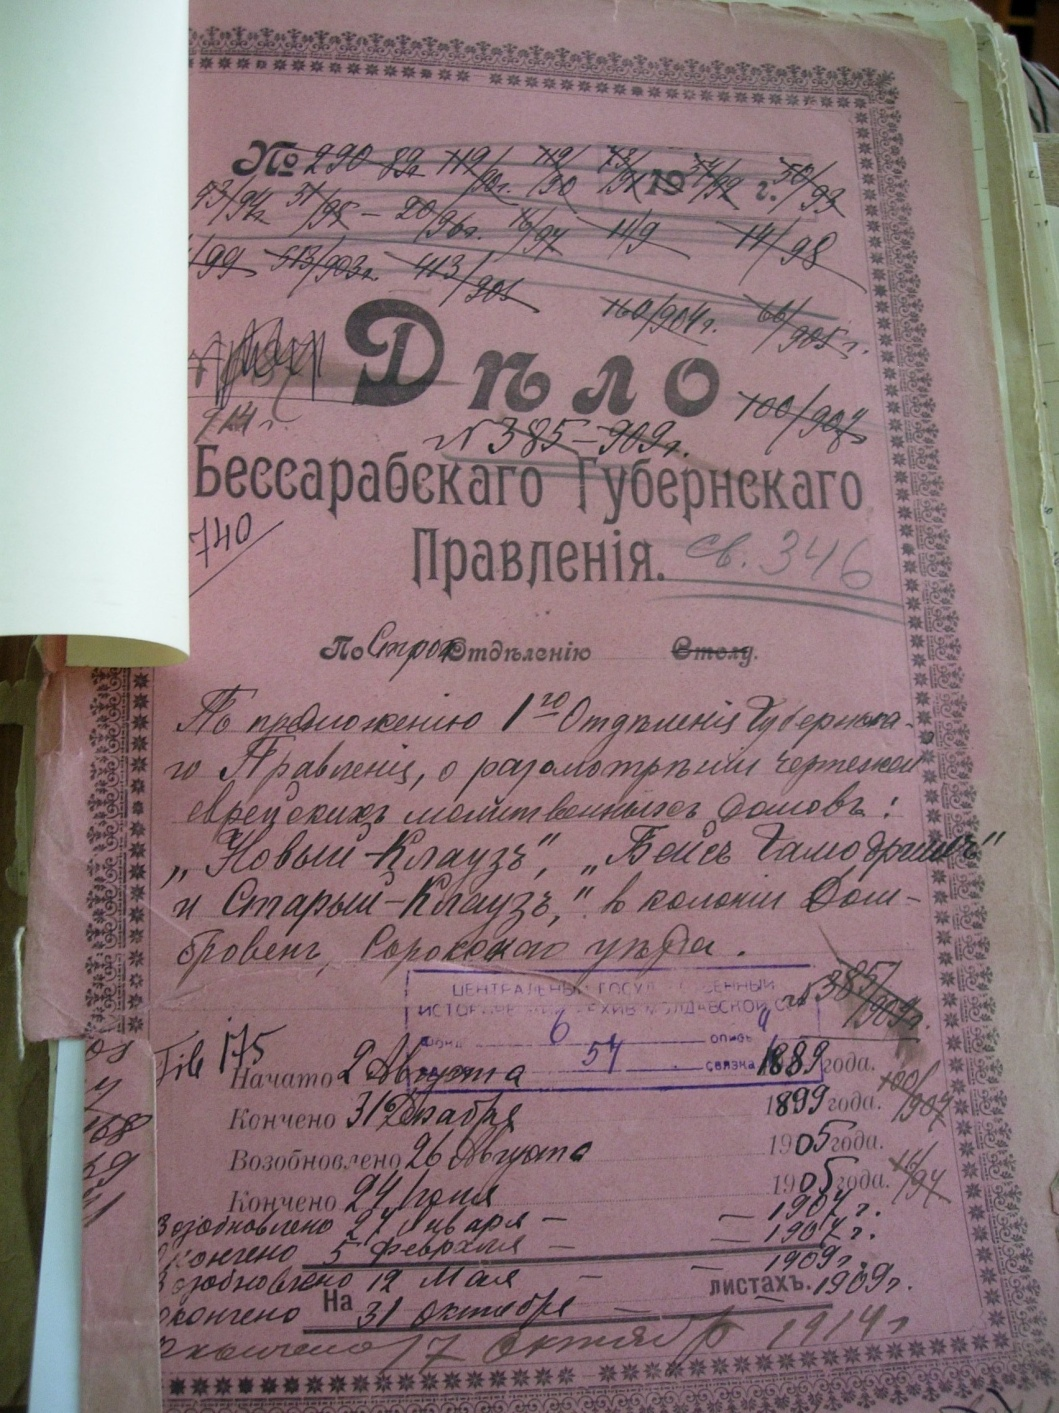 № 290 82 г 119/90 г. 119/90 73/91 19 54/92 г. 50/93
73/94 г 31/95 - 20/96 г. 16/97 11/9 14/98
/99 513/903 г. 413/901
160/904 г. 66/905 г.
Дѣло
914 г. 100/907
№ 385-909 г.
Бессарабскаго Губернскаго
740
Правленія. св. 346
По Строй Отдѣленію Столу.
По предложению 1го Отдѣленія Губернска-
го Правленія, о разсмотрѣніи чертежей
еврейскихъ молитвенныхъ домовъ:
„Новый-Клаузъ", „Бейсъ Гамедришъ"
и Старый-Клаузъ," въ колоніи Дом-
бровенъ, Сорокскаго уѣзда.
№ 385/909 г.
ЦЕНТРАЛЬНЫЙ ГОСУДАРСТВЕННЫЙ
ИСТОРИЧЕСКИЙ АРХИВ МОЛДАВСКОЙ ССР
фонд 6 опись 4
54 связка
File 175
Начато 2 Августа 1889 года.
100/907
Кончено 31 Декабря 1899 года.
Возобновлено 26 Августа 1905 года.
16/97
Кончено 24 1905 года.
Возобновлено 27 Января - - 1907 г.
Окончено 5 Февраля - - 1907 г.
Возобновлено 12 Мая - 1909 г.
На листахъ.
Окончено 31 октября - 1909 г.
Окончено 17 октября 1914 г